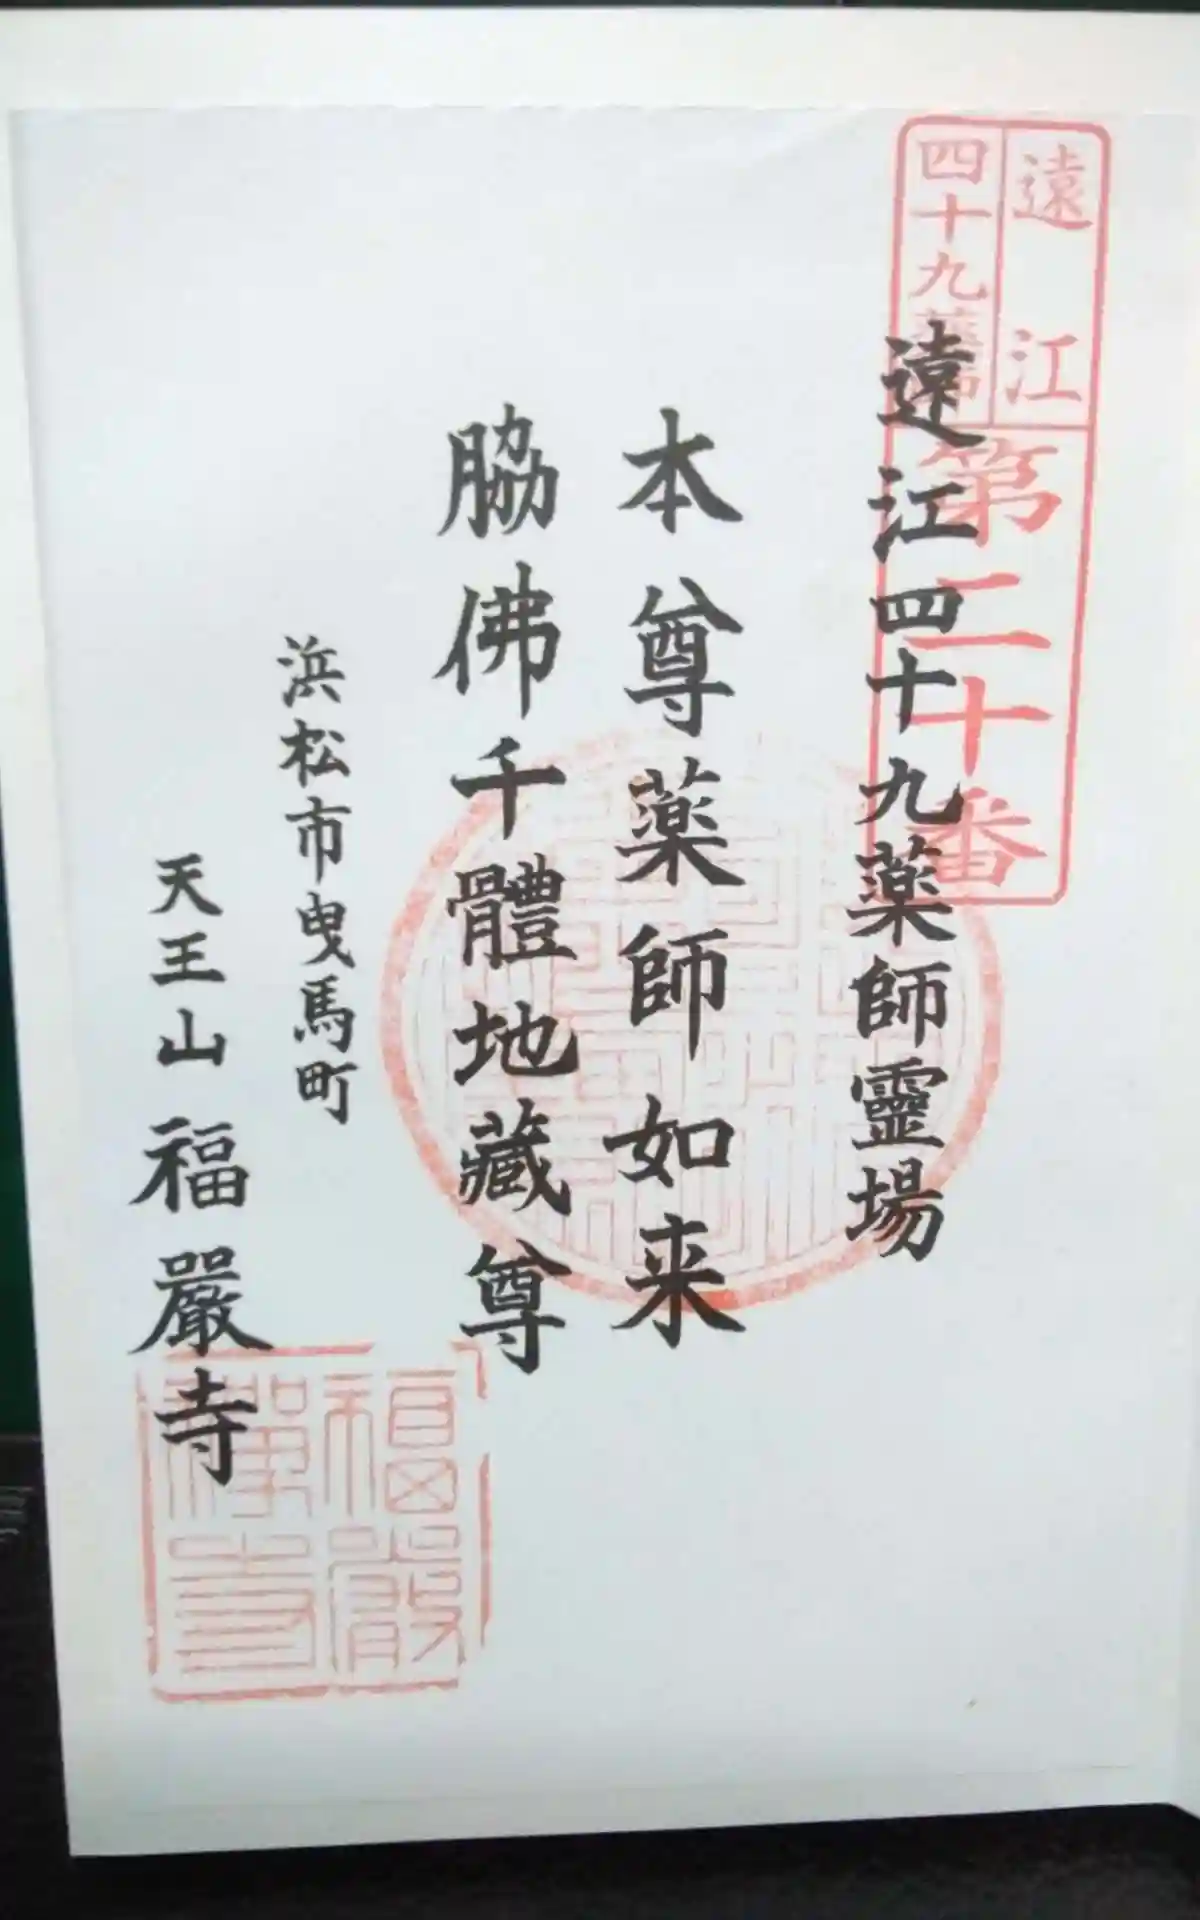 遠江
四十九薬師
第二十番
遠江四十九薬師靈場
本尊薬師如来
脇佛千體地藏尊
浜松市曳馬町
天王山 福嚴寺
福嚴
禅寺